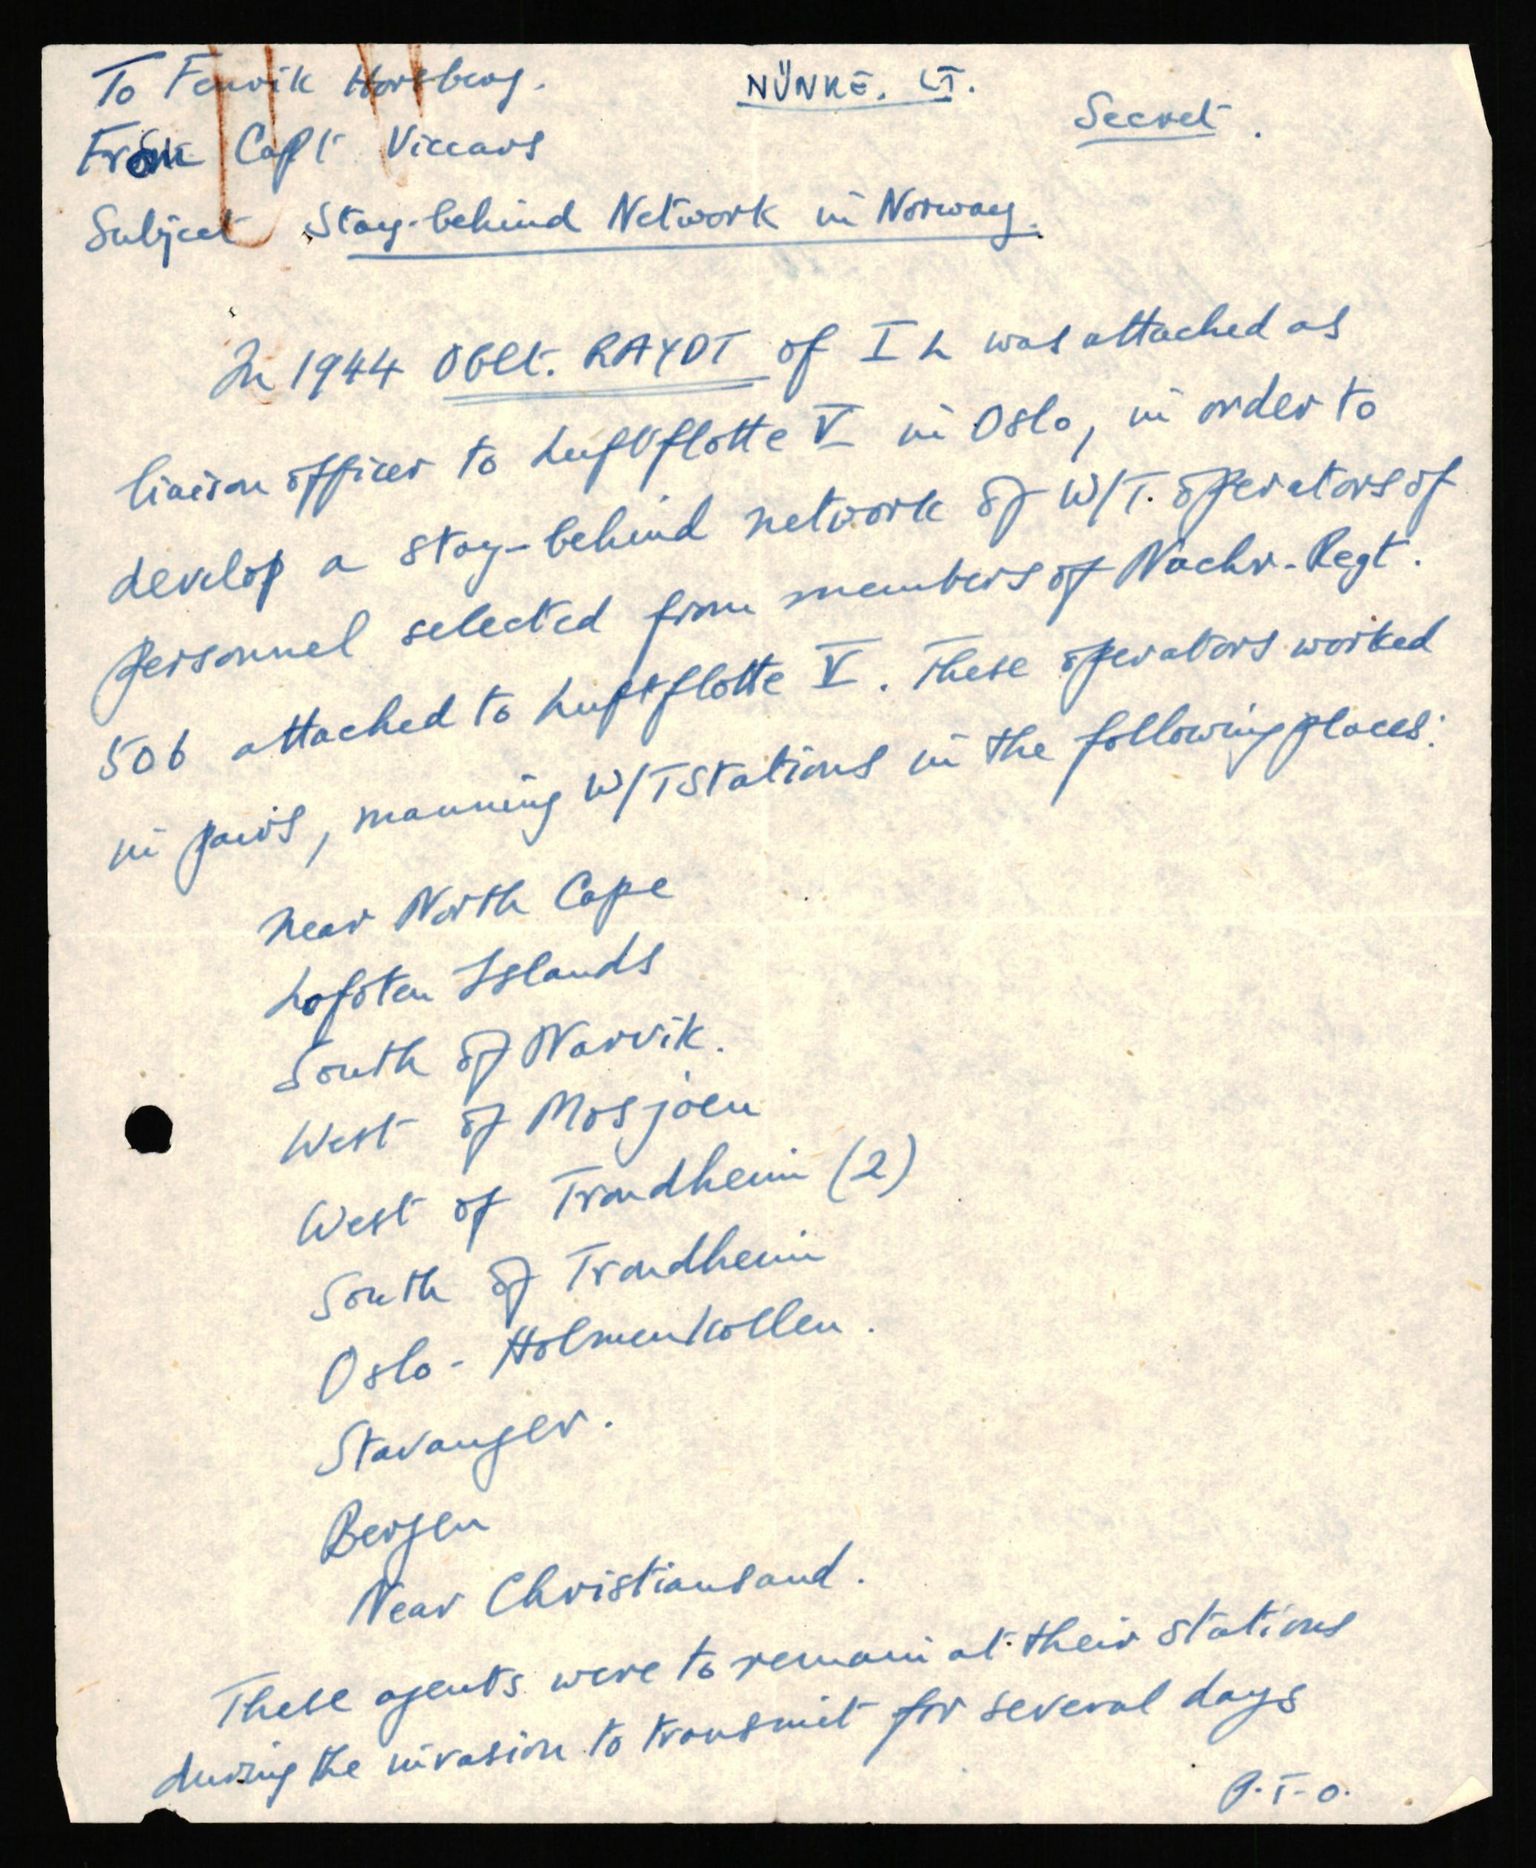 To Fenvik Horsberg.
NÜNKE. LT.
Secret.
From Capt Viccars
Subject Stay-behind Network in Norway.
In 1944 Oblt. RAYDT of I L was attached as
liaison officer to Luftflotte V in Oslo, in order to
develop a stay-behind network of W/T. operators of
personnel selected from members of Nachr.-Regt.
506 attached to Luftflotte V. These operators worked
in pairs, manning W/T Stations in the following places:
near North Cape
Lofoten Islands
South of Narvik.
West of Mosjoen
West of Trondheim (2)
South of Trondheim
Oslo - Holmenkollen.
Stavanger.
Bergen
Near Christiansand.
These agents were to remain at their stations
during the invasion to transmit for several days
P.T.O.